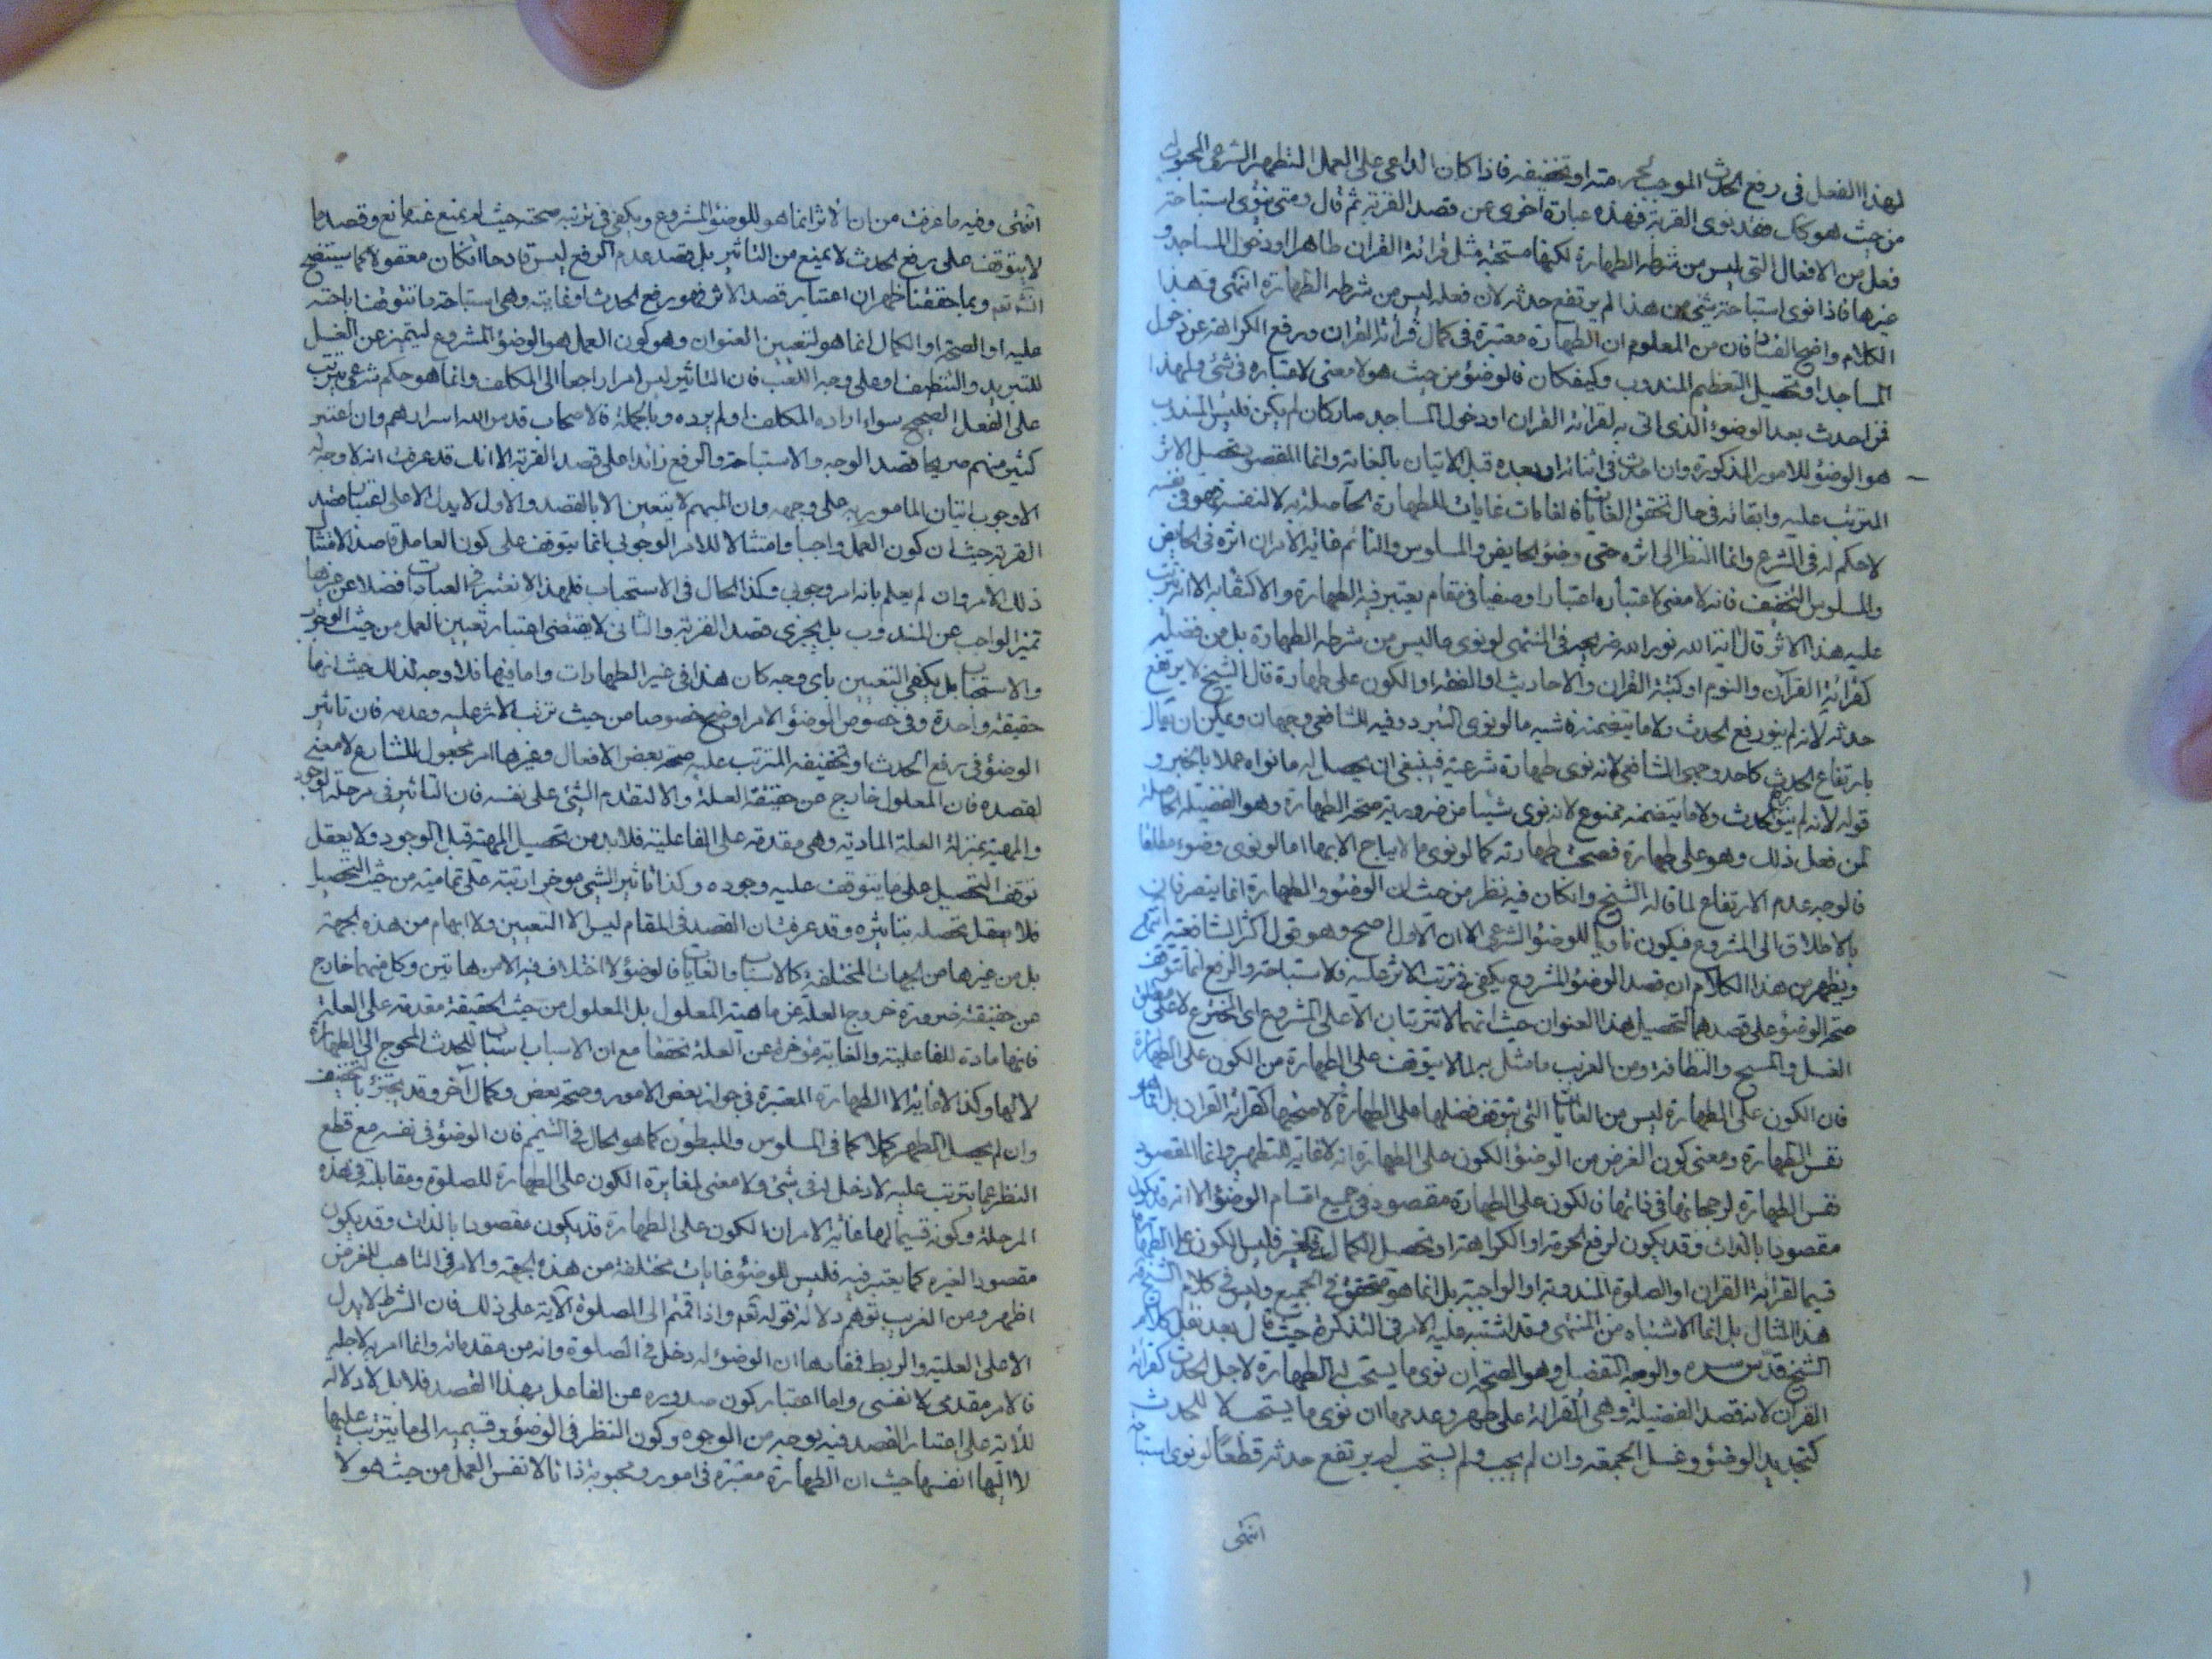 لهذا الفعل في رفع الحدث الموجب لحرمته او تخفيفه فاذا كان الداعي على العمل التطهير الشرعي المجعول له
من حيث هو كك فقد نوى القربة فهذه عبارة اخرى عن قصد القربة ثم قال ومتى نوى استباحة
فعل من الافعال التي ليس من شرطه الطهارة لكنها مستحبة مثل قرائة القران طاهرا ودخول المساجد و
غيرها فاذا نوى استباحة شئ من هذا لم يرتفع حدثه لان فعله ليس من شرطه الطهارة انتهى وهذا
الكلام واضح الفساد فان من المعلوم ان الطهارة معتبرة في كمال قرائة القران ورفع الكراهة عن دخول
المساجد او تحصيل التعظيم المندوب وكيف كان فالوضوء من حيث هو لا معنى لاعتباره في شئ ولهذا
فمن احدث بعد الوضوء الذي اتى به لقرائة القران او دخول المساجد صار كان لم يكن فليس المندوب
هو الوضوء للامور المذكورة وان احدث في اثنائه او بعده قبل الاتيان بالغاية وانما المقصود تحصيل الاثر
المترتب عليه وابقائه في حال تحقق الغايات فالغايات غايات للطهارة الحاصلة به لا لنفسه فهو في نفسه
لا حكم له في الشرع وانما النظر الى اثره حتى وضوء الحايض والمسلوس والنائم غاية الامر ان اثره في الحايض
والمسلوس التخفيف فانه لا معنى لاعتباره اعتبارا وصفيا في مقام يعتبر فيه الطهارة والاكتفاء به الا ترتب
عليه هذا الاثر قال اية الله نور الله ضريحه في المنتهى لو نوى ما ليس من شرطه الطهارة بل من فضله
كقرائة القرآن والنوم او كتبة القران والاحاديث او الفقه او الكون على طهارة قال الشيخ لا يرتفع
حدثه لانه لم ينو رفع الحدث ولا ما يتضمنه شبه ما لو نوى التبرد وفيه للشافعي وجهان ويمكن ان يقال
بارتفاع الحدث كاحد وجهي الشافعي لانه نوى طهارة شرعية فينبغي ان يحصل له ما نواه عملا بالخبر و
قوله لانه لم ينو رفع الحدث ولا ما يتضمنه ممنوع لانه نوى شيئا من ضرورية صحة الطهارة وهو الفضيلة الحاصلة
لمن فعل ذلك وهو على طهارة فصحت طهارته كما لو نوى ما لا يباح الا بها اما لو نوى وضوء مطلقا
فالوجه عدم الارتفاع لما قاله الشيخ وان كان فيه نظر من حيث ان الوضوء والطهارة انما ينصرفان
بالاطلاق الى المشروع فيكون ناويا للوضوء الشرعي الا ان الاول اصح وهو قول اكثر الشافعية انتهى
ويظهر من هذا الكلام ان قصد الوضوء المشروع يكفي في ترتب الاثر عليه فلاستباحة والرفع انما تتوقف
صحة الوضوء على قصدهما لتحصيل هذا العنوان حيث انهما لا تترتبان الا على المشروع اي المخترع لا على مطلق
الغسل والمسح والنظافة ومن الغريب ما مثل به لما لا يتوقف على الطهارة من الكون على الطهارة
فان الكون على الطهارة ليس من الغايات التي يتوقف فضلها على الطهارة لا صحتها كقرائة القران بل انما هو
نفس الطهارة ومعنى كون الغرض من الوضوء الكون على الطهارة انه لا غاية للتطهير وانما المقصود
نفس الطهارة لرجحانها في ذاتها فالكون على الطهارة مقصود في جميع اقسام الوضوء الا انه قد يكون
مقصودا بالذات وقد يكون لرفع الحرمة او الكراهة او تحصيل الكمال في الغير فليس الكون على الطهارة
قسيما لقرائة القران او الصلوة المندوبة او الواجبة بل انما هو متحقق في الجميع وليس في كلام الشيخ
هذا المثال بل انما الاشتباه من المنتهى وقد اشتبه فليه الامر في التذكرة حيث قال بعد نقل كلام
الشيخ قدس سره والوجه التفصيل وهو الصحة ان نوى ما يستحب له الطهارة لاجل الحدث كقرائة
القران لانه قصد الفضيلة وهي القرائة على طهر وعدمها ان نوى ما يستحب لا للحدث
كتجديد الوضوء وغسل الجمعة وان لم يجب ولم يستحب لم يرتفع حدثه قطعا لو نوى استباحة
انتهى
انتهى وفيه ما عرفت من ان الاثر انما هو للوضوء المشروع ويكفي في ترتبه صحته حيث لم يمنع عنه مانع وقصد ما
لا يتوقف على رفع الحدث لا يمنع من التاثير بل قصد عدم الرفع ليس قادحا اذا كان معقولا كما سيتضح
انشاء الله تعم وبما حققنا ظهر ان اعتبار قصد الاثر وهو رفع الحدث او غايته وهي استباحة ما تتوقف اباحته
عليه او الصحة او الكمال انما هو لتعيين العنوان وهو كون العمل هو الوضوء المشروع ليتميز عن الغسل
للتبريد والتنظيف او على وجه اللعب فان التاثير ليس امرا راجعا الى المكلف وانما هو حكم شرعي يترتب
على الفعل الصحيح سواء اراده المكلف او لم يرده وبالجملة فالاصحاب قدس الله اسرارهم وان اعتبر
كثير منهم صريحا قصد الوجه والاستباحة والرفع زائدا على قصد القربة الا انك قد عرفت انه لا وجه له
الا وجوب اتيان المامور به على وجهه وان المبهم لا يتعين الا بالقصد والاول لا يدل الا على اعتبار قصد
القربة حيث ان كون العمل واجبا وامتثالا للامر الوجوبي انما يتوقف على كون العامل قاصدا لامتثال
ذلك الامر وان لم يعلم بانه امر وجوبي وكذا الحال في الاستحباب فلهذا لا نعتبر في العبادات فضلا عن غيرها
تميز الواجب عن المندوب بل يجزي قصد القربة والثاني لا يقتضي اعتبار تعيين العمل من حيث الوجوب
والاستحباب بل يكفي التعيين باي وجه كان هذا في غير الطهارات واما فيها فلا وجه لذلك حيث انها
حقيقة واحدة وفي خصوص الوضوء الامر اوضح خصوصا من حيث ترتب الاثر عليه وعدمه فان تاثير
الوضوء في رفع الحدث او تخفيفه المترتب عليه صحة بعض الافعال وغيرها امر مجعول للشارع لا معنى
لقصده فان المعلول خارج عن حقيقة العلة والا لتقدم الشئ على نفسه فان التاثير في مرحلة الوجود
والمهية بمنزلة العلة المادية وهي مقدمة على الفاعلية فلا بد من تحصيل المهية قبل الوجود ولا يعقل
توقف التحصيل على ما يتوقف عليه وجوده وكذا تاثير الشئ موخر رتبة على تمامية من حيث التحصيل
فلا يعقل تحصله بتاثيره وقد عرفت ان القصد في المقام ليس الا التعيين ولا ابهام من هذه الجهة
بل من غيرها من الجهات المختلفة كالاسباب والغايات فالوضوء لا اختلاف فيه الا من هاتين وكل منهما خارج
عن حقيقته ضرورة خروج العلة عن ماهية المعلول بل المعلول من حيث الحقيقة مقدمة على العلة
فانها مادة للفاعلية والغاية مؤخرة عن العلة تحققا مع ان الاسباب اسباب للحدث المحوج الى الطهارة
لا لها وكذا لا غاية الا الطهارة المعتبرة في جواز بعض الامور وصحة بعض وكمال آخر وقد يجتزء بالتخفيف
وان لم يحصل الطهر كملا كما في المسلوس والمبطون كما هو الحال في التيمم فان الوضوء في نفسه مع قطع
النظر عما يترتب عليه لا دخل له في شئ ولا معنى لمغايرة الكون على الطهارة للصلوة ومقابلته في هذه
المرحلة وكونه قسيما لها غاية الامر ان الكون على الطهارة قد يكون مقصودا بالذات وقد يكون
مقصودا لغيره كما يعتبر فيه فليس للوضوء غايات مختلفة من هذه الجهة والامر في التاهب للفرض
اظهر ومن الغريب توهم دلالة قوله تعم واذا قمتم الى الصلوة الآية على ذلك فان الشرط لا يدل
الا على العلية والربط فمفادها ان الوضوء له دخل في الصلوة وانه من مقدماته وانما امر به لاجله
فالامر مقدمي لا نفسي واما اعتبار كون صدوره عن الفاعل بهذا القصد فلا بل لا دلالة
للآية على اعتبار القصد فيه بوجه من الوجوه وكون النظر في الوضوء وقسيميه الى ما يترتب عليها
لا اليها انفسها حيث ان الطهارة معتبرة في امور ومحبوبة ذاتا لا نفس العمل من حيث هو لا